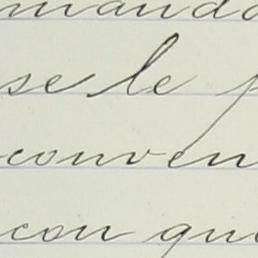 manda
se le p
conven
con que